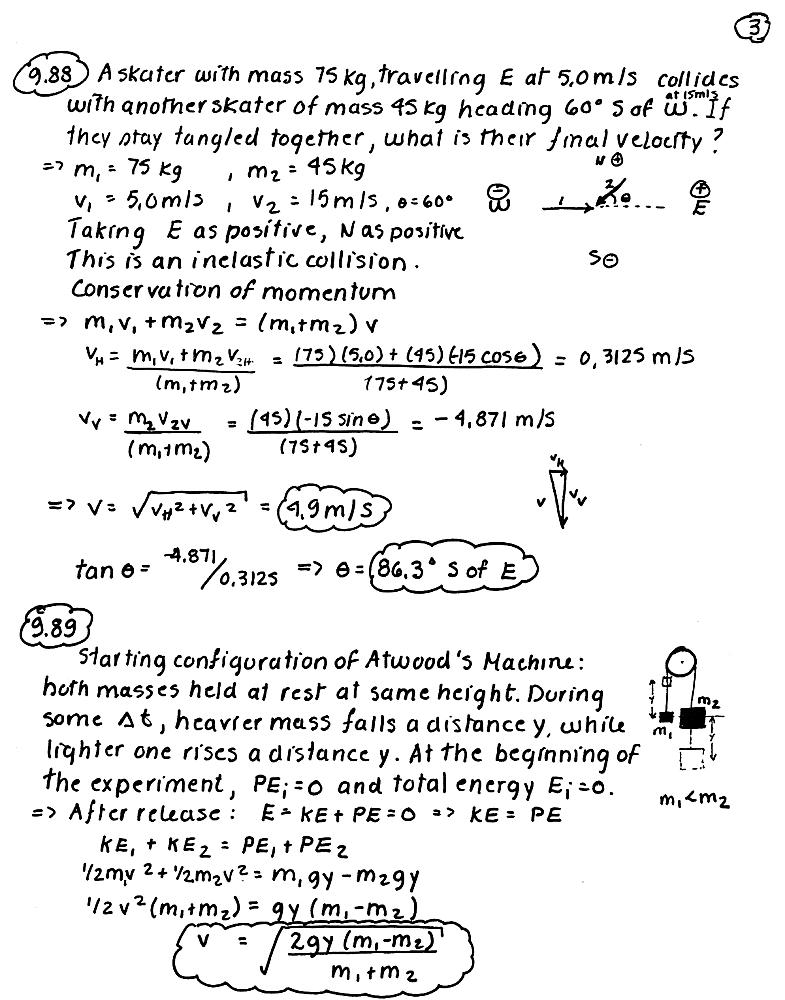 3
9.88 A skater with mass 75 kg, travelling E at 5.0 m/s collides
with another skater of mass 45 kg heading 60° S of W at 15m/s. If
they stay tangled together, what is their final velocity?
=> m₁ = 75 kg , m₂ = 45 kg
N ⊕
v₁ = 5.0 m/s , v₂ = 15 m/s, θ=60° ⊖ W 1 2 θ ⊕ E
Taking E as positive, N as positive
This is an inelastic collision. S⊖
Conservation of momentum
=> m₁v₁ + m₂v₂ = (m₁+m₂) v
V_H = m₁v₁+m₂v₂H / (m₁+m₂) = (75)(5.0) + (45)(-15 cosθ) / (75+45) = 0.3125 m/s
V_V = m₂v₂V / (m₁+m₂) = (45)(-15 sinθ) / (75+45) = -4.871 m/s
=> V = √(V_H² + V_V²) = 4.9 m/s
V_H V V_V
tan θ = -4.871/0.3125 => θ = 86.3° S of E
9.89
Starting configuration of Atwood's Machine:
both masses held at rest at same height. During
some Δt, heavier mass falls a distance y, while
lighter one rises a distance y. At the beginning of
the experiment, PEᵢ=0 and total energy Eᵢ=0.
y m₁ m₂ y
m₁<m₂
=> After release: E = KE + PE = 0 => KE = PE
KE₁ + KE₂ = PE₁ + PE₂
1/2m₁v² + 1/2m₂v² = m₁gy - m₂gy
1/2 v² (m₁+m₂) = gy (m₁-m₂)
v = √(2gy (m₁-m₂) / m₁+m₂)